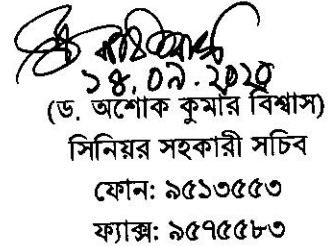 ১৪.০৯.২০২০
(ড. অশোক কুমার বিশ্বাস)
সিনিয়র সহকারী সচিব
ফোন: ৯৫১৩৫৫৩
ফ্যাক্স: ৯৫৭৫৫৮৩